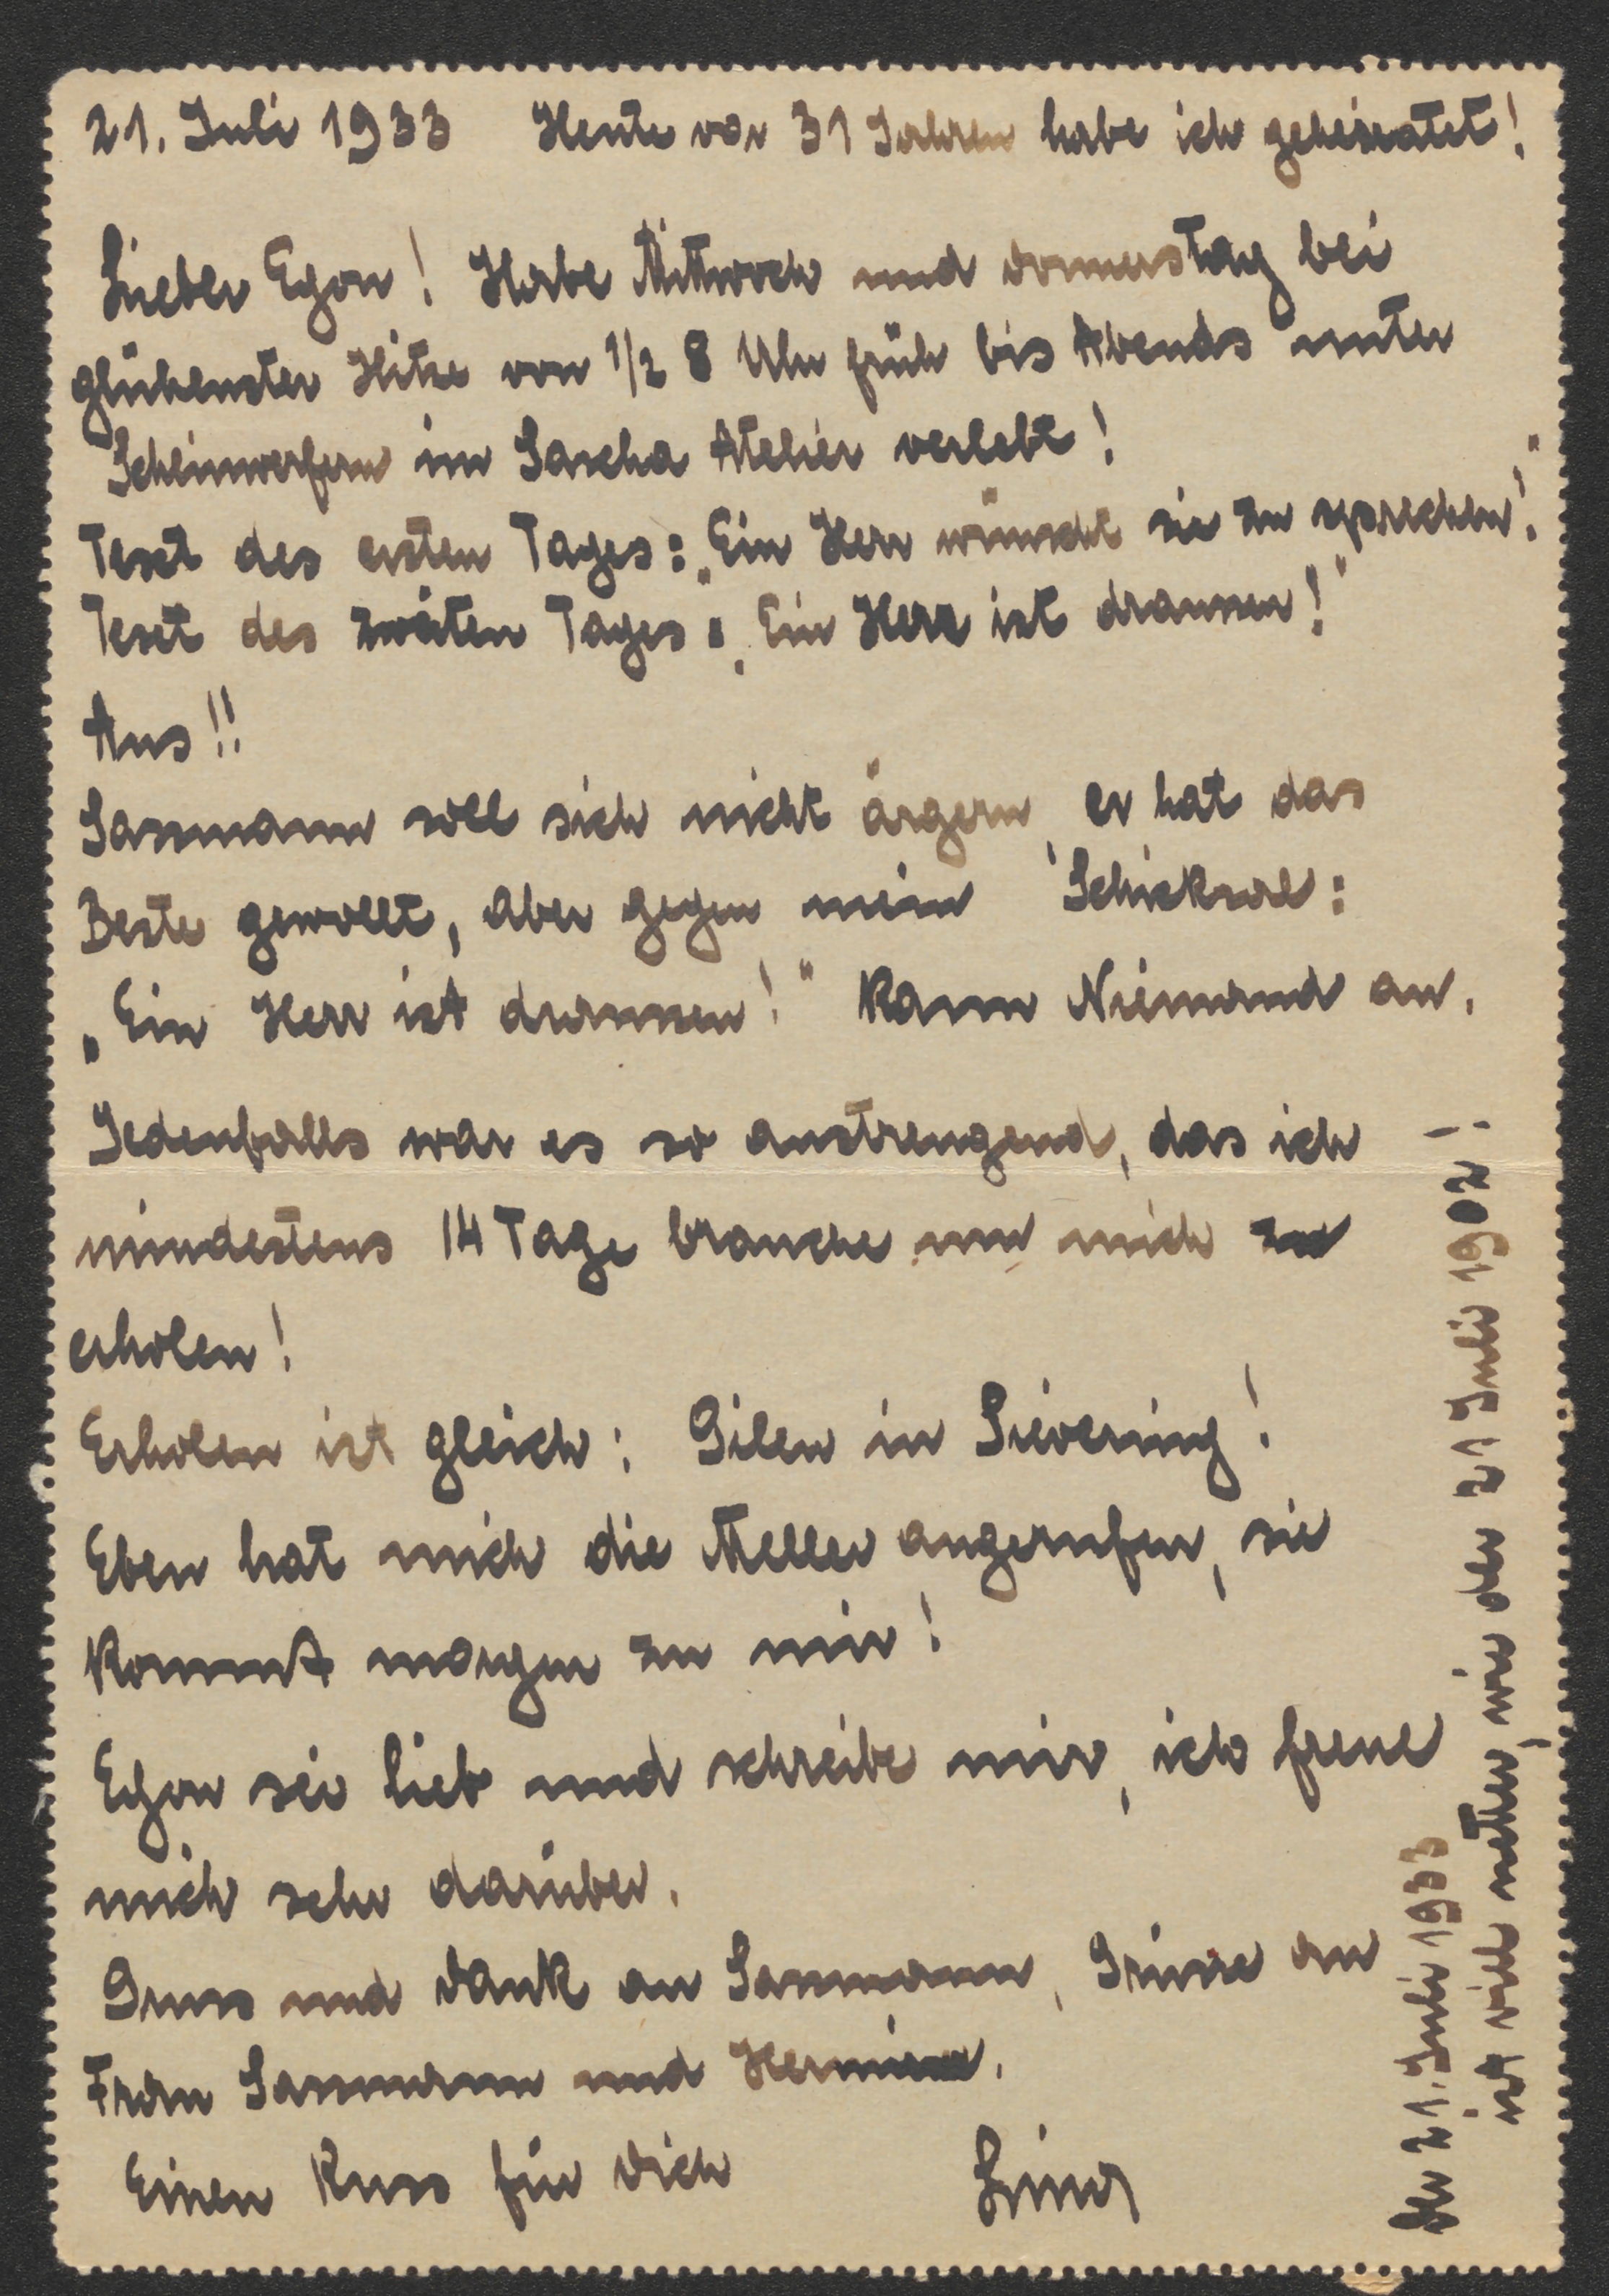 21. Juli 1933 Heute vor 31 Jahren habe ich geheiratet!
Lieber Egon! Habe Mittwoch und Donnerstag bei
glühenster Hitze von 1/2 8 Uhr früh bis Abends unter
Scheinwerfern im Sascha Atelier verlebt!
Text des ersten Tages: „Ein Herr wünscht sie zu sprechen!"
Text des zweiten Tages: „Ein Herr ist draussen!"
Aus!!
Sassmann soll sich nicht ärgern, er hat das
Beste gewollt, aber gegen mein Schicksal:
„Ein Herr ist draussen!" kann Niemand an.
Jedenfalls war es so anstrengend, das ich
mindestens 14 Tage brauche um mich zu
erholen!
Erholen ist gleich: Gilen in Sievering!
Eben hat mich die Meller angerufen, sie
kommt morgen zu mir!
Egon sei lieb und schreibe mir, ich freue
mich sehr darüber.
Gruss und Dank an Sassmann, Grüsse an
Frau Sassmann und Hermine.
Einen Kuss für Dich Lina
Der 21. Juli 1933
ist viel netter, wie der 21 Juli 1902!